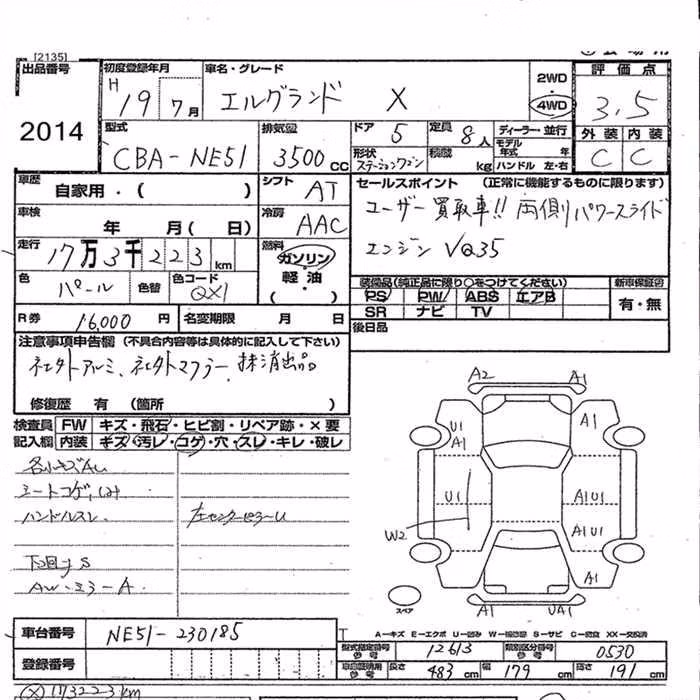 [2135]
出品番号 初度登録年月 車名・グレード 2WD 評価点
2014 H 19 7月 エルグランド X 4WD 3.5
型式 排気量 ドア 5 定員 8人 ディーラー・並行 外装 内装
CBA-NE51 3500cc 形状 ステーションワゴン 積載 kg モデル年式 年 C C
ハンドル 左・右
車歴 自家用・( ) シフト AT セールスポイント (正常に機能するものに限ります)
車検 年 月( 日) 冷房 AAC ユーザー買取車!! 両側パワースライド
走行 17万3千223km 燃料 ガソリン 軽油 ・( ) エンジン VQ35
色 パール 色替 色コード QX1 装備品(純正品に限り○をつけてください) 新車保証書
PS PW ABS エアB 有・無
SR ナビ TV
R券 16,000円 名変期限 月 日 後日品
注意事項申告欄 (不具合内容等は具体的に記入して下さい)
社外アルミ、社外マフラー、抹消出品
修復歴 有 (箇所 )
検査員 FW キズ・飛石・ヒビ割・リペア跡・×要
記入欄 内装 キズ・汚レ・コゲ・穴・スレ・キレ・破レ
各小キズAU
シートコゲ、シミ
ハンドルスレ 左センターピラーU
下回りS
AW・ミラーA
A2 A1
U1 A1 A1
U1 A1U1
W2 A1U1
A1
スペア A1 UA1
A-キズ E-エクボ U-凹み W-補修跡 S-サビ C-腐食 XX-交換済
車台番号 NE51-230185 型式指定番号 参考 12613 類別区分番号 参考 0530
登録番号 車両証明用 参考 長さ 483cm 幅 179cm 高さ 191cm
173223km